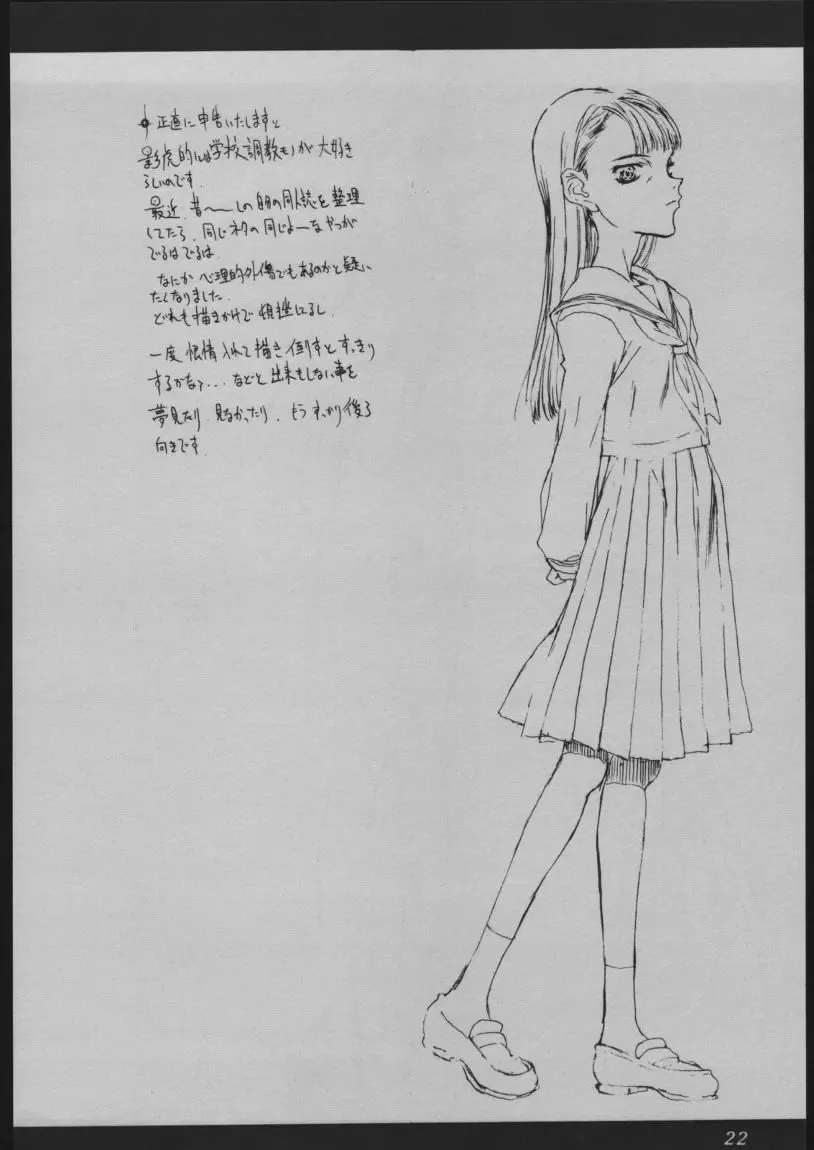 正直に申告いたしますと
影虎的には学校調教モノが大好き
らしいのです.
最近、昔〜〜しの自分の同人誌を整理
してたら、同じネタの同じよーなやつが
でるはでるは.
なにか心理的外傷でもあるのかと疑い
たくなりました.
どれも描きかけで頓挫してるし.
一度 根情入れて描き倒すとすっきり
するかな?... などと出来もしない事を
夢見たり 見なかったり、もうすっかり後ろ
向きです.
22